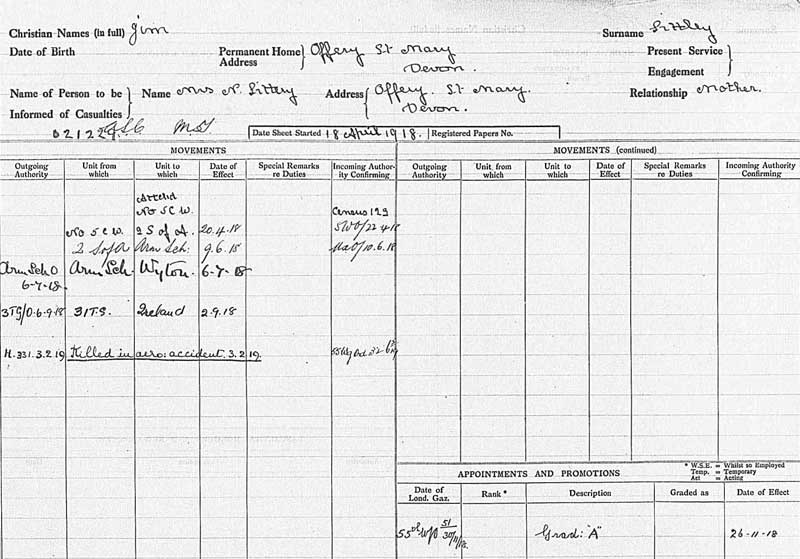 Christian Names (in full) Jim
Surname Sittley
Date of Birth
Permanent Home Address } Offery St Mary
Devon.
Present Service Engagement }
Name of Person to be Informed of Casualties } Name Mrs N. Sittley
Address { Offery. St Mary.
Devon.
Relationship Mother.
Date Sheet Started 18 April 1918. Registered Papers No.
MOVEMENTS
Outgoing Authority
Unit from which
Unit to which
Date of Effect
Special Remarks re Duties
Incoming Author-ity Confirming
No 5 C W. Census 129
No 5 C W. 2 S of A. 20.4.18
2 S of A Arm Sch: 9.6.18 10.6.18
Arm Sch O Arm Sch. Wyton. 6-7-18
6-7-18.
3TG/O.6.9.18 31 T.S. Ireland 2.9.18
H.331.3.2.19 Killed in aero: accident. 3.2.19.
MOVEMENTS (continued)
Outgoing Authority
Unit, from which
Unit to which
Date of Effect
Special Remarks re Duties
Incoming Authority Confirming
* W.S.E. = Whilst so Employed
Temp. = Temporary
Act = Acting
APPOINTMENTS AND PROMOTIONS
Date of Lond. Gaz.
Rank *
Description
Graded as
Date of Effect
Grad: "A" 26-11-18